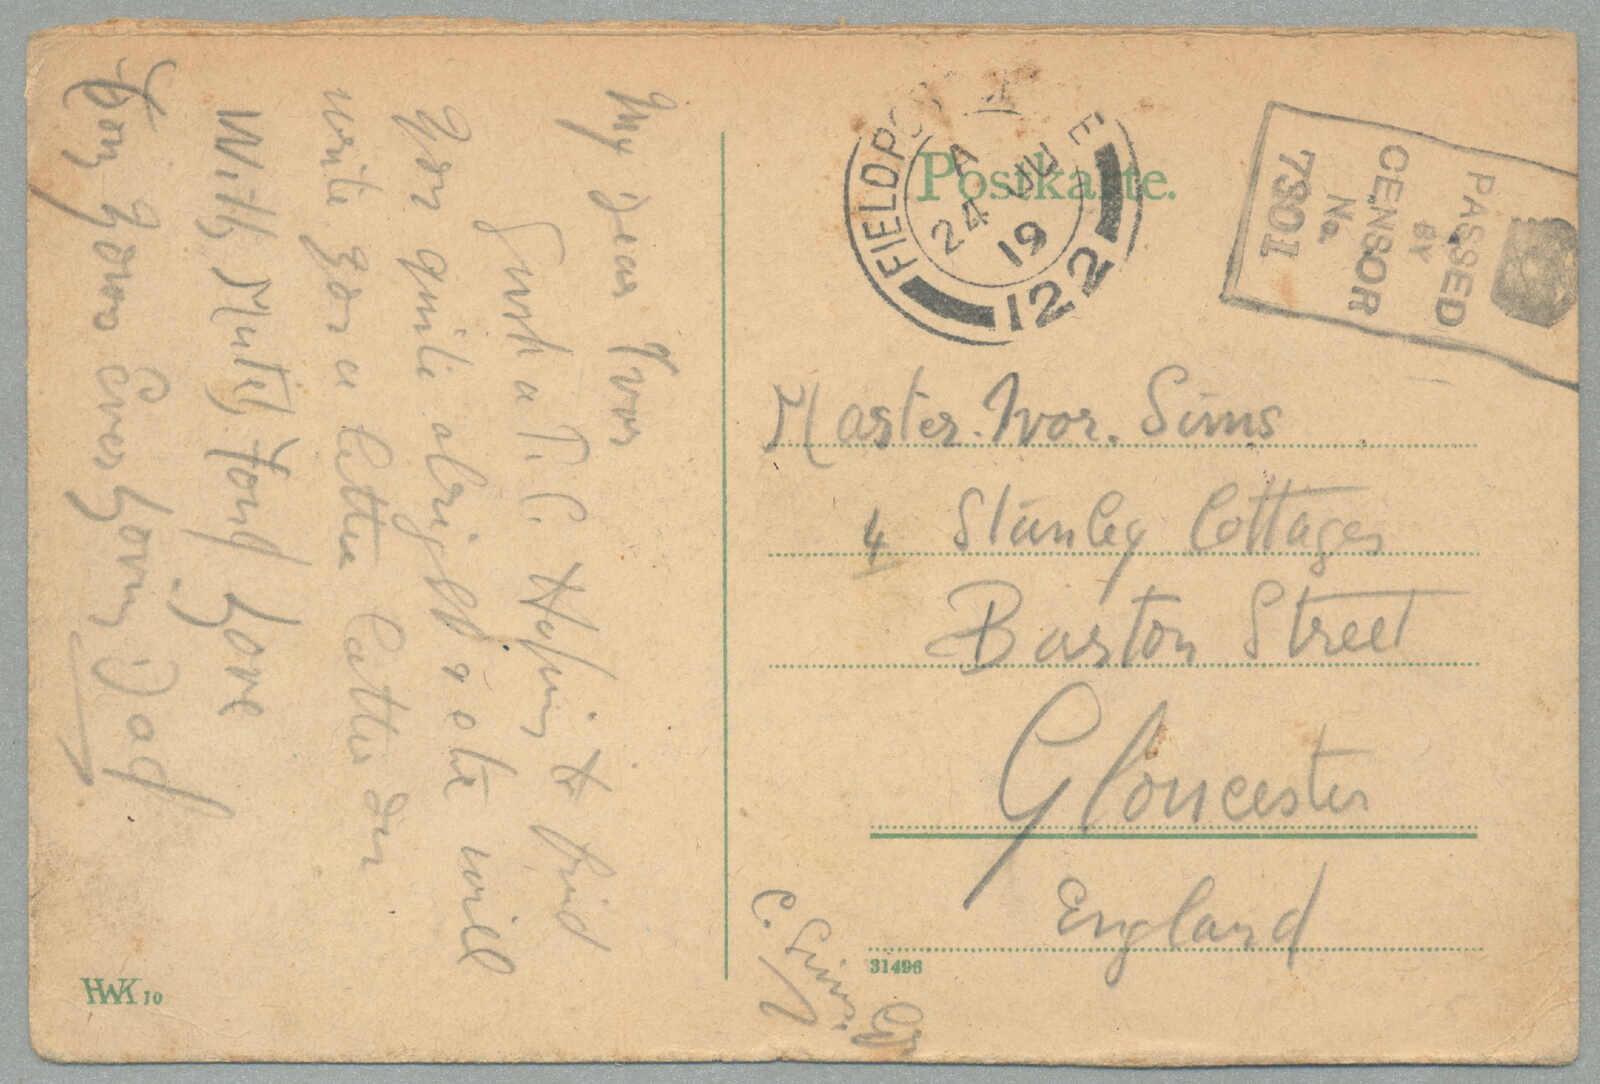 My dear Ivor
Just a P.C. Hoping to find
you quite alright & etc will
write you a letter latter on
With Muth Fond Love
From Your Ever Loving Dad
Postkarte.
FIELD POST OFFICE
A
24 JU
19
122
PASSED
BY
CENSOR
No.
7301
Master. Ivor. Sims
4 Stanley Cottages
Barton Street
Gloucester
England
C. Sims
31496
HWK 10